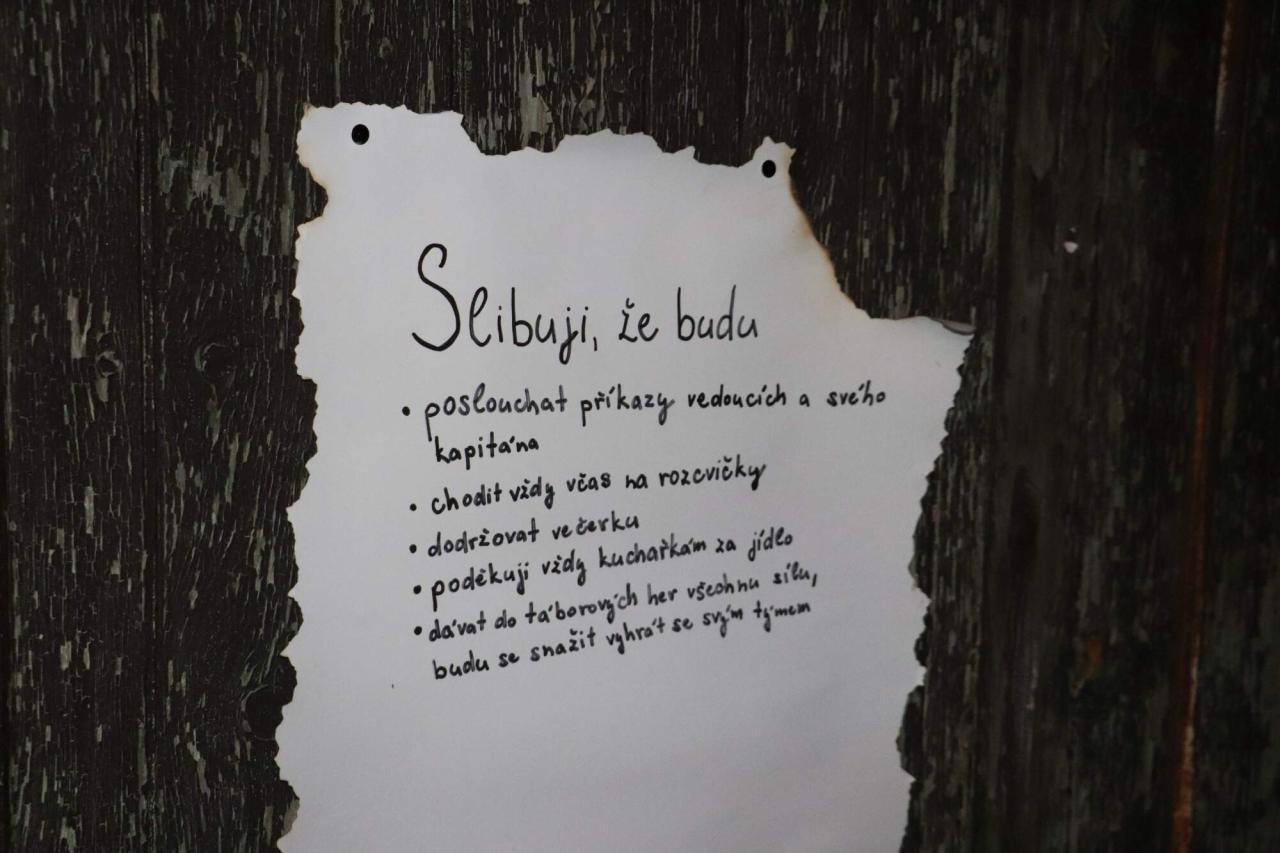 Slibuji, že budu
• poslouchat příkazy vedoucích a svého
kapitána
• chodit vždy včas na rozcvičky
• dodržovat večerku
• poděkuji vždy kuchařkám za jídlo
• dávat do táborových her všechnu sílu,
budu se snažit vyhrát se svým týmem